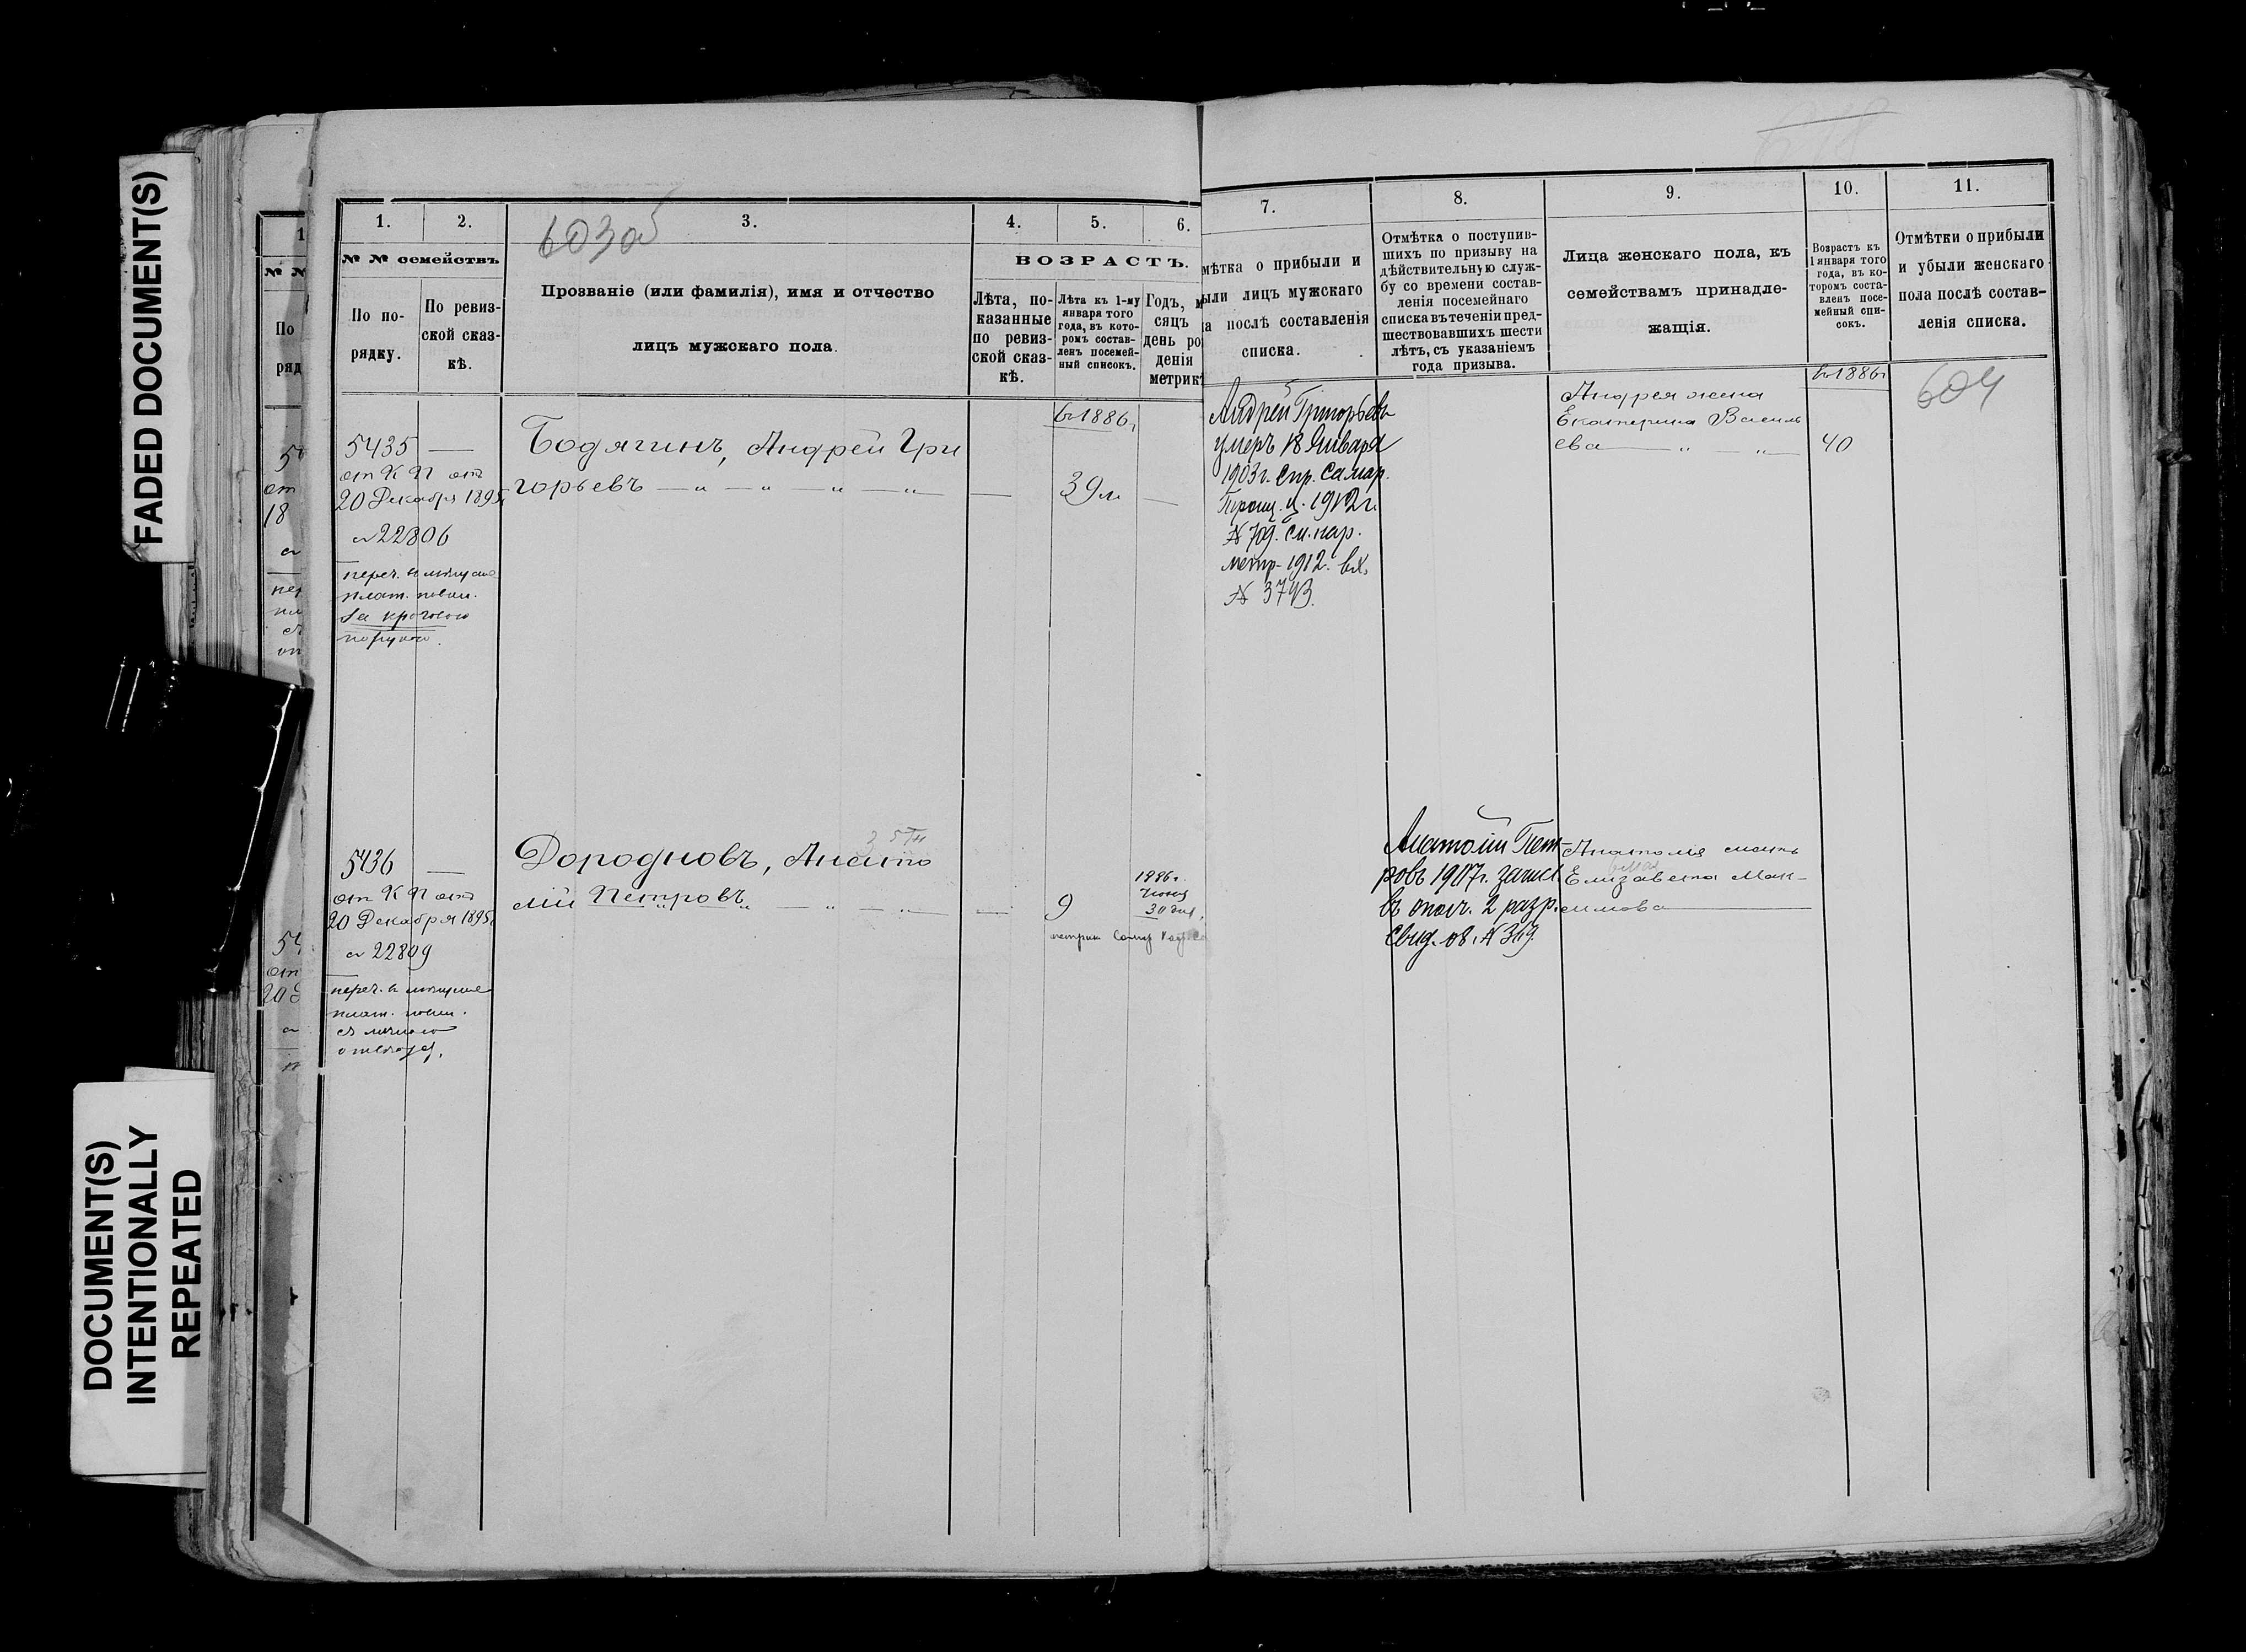 FADED DOCUMENT(S)
DOCUMENT(S)
INTENTIONALLY
REPEATED
603 об
1.
2.
3.
4.
5.
6.
№ № семействъ
По по-
рядку.
По ревиз-
ской сказ-
кѣ.
Прозваніе (или фамилія), имя и отчество
лицъ мужскаго пола.
ВОЗРАСТЪ.
Лѣта, по-
казанные
по ревиз-
ской сказ-
кѣ.
Лѣта къ 1-му
января того
года, въ кото-
ромъ состав-
ленъ посемей-
ный списокъ.
Годъ, м
сяцъ
день ро
денія
метрик
5435
от К П отъ
20 Декабря 1895
№ 22806
переч. въ
плат. повин.
за круговою
порукою.
Бодягинъ, Андрей Гри
горьевъ
въ 1886г
39 л.
5436
от К П отъ
20 Декабря 1895г
№ 22809
переч. въ
плат. повин.
съ личною
Дородновъ, Анато
лій Петровъ
9
1886г.
Іюня
30 дня
7.
8.
9.
10.
11.
мѣтка о прибыли и
ыли лицъ мужскаго
а послѣ составленія
списка.
Отмѣтка о поступив-
шихъ по призыву на
дѣйствительную служ-
бу со времени состав-
ленія посемейнаго
списка въ теченіи пред-
шествовавшихъ шести
лѣтъ, съ указаніемъ
года призыва.
Лица женскаго пола, къ
семействамъ принадле-
жащія.
Возрастъ къ
1 января того
года, въ ко-
торомъ соста-
вленъ посе-
мейный спи-
сокъ.
Отмѣтки о прибыли
и убыли женскаго
пола послѣ состав-
ленія списка.
604
Андрей Григорьевъ
умеръ 18 Января
1903г. спр. Самар.
ц. 1912г.
№ 709. см. нар.
метр. 1912. вх.
№ 3743.
Андрея жена
Екатерина Василь
ева
въ 1886г
40
Анатолій Пет-
ровъ 1907г. зачисл.
въ ополч. 2 разр.
Свид. 08. № 369.
Анатолія мать
Елизавета Мак-
симова